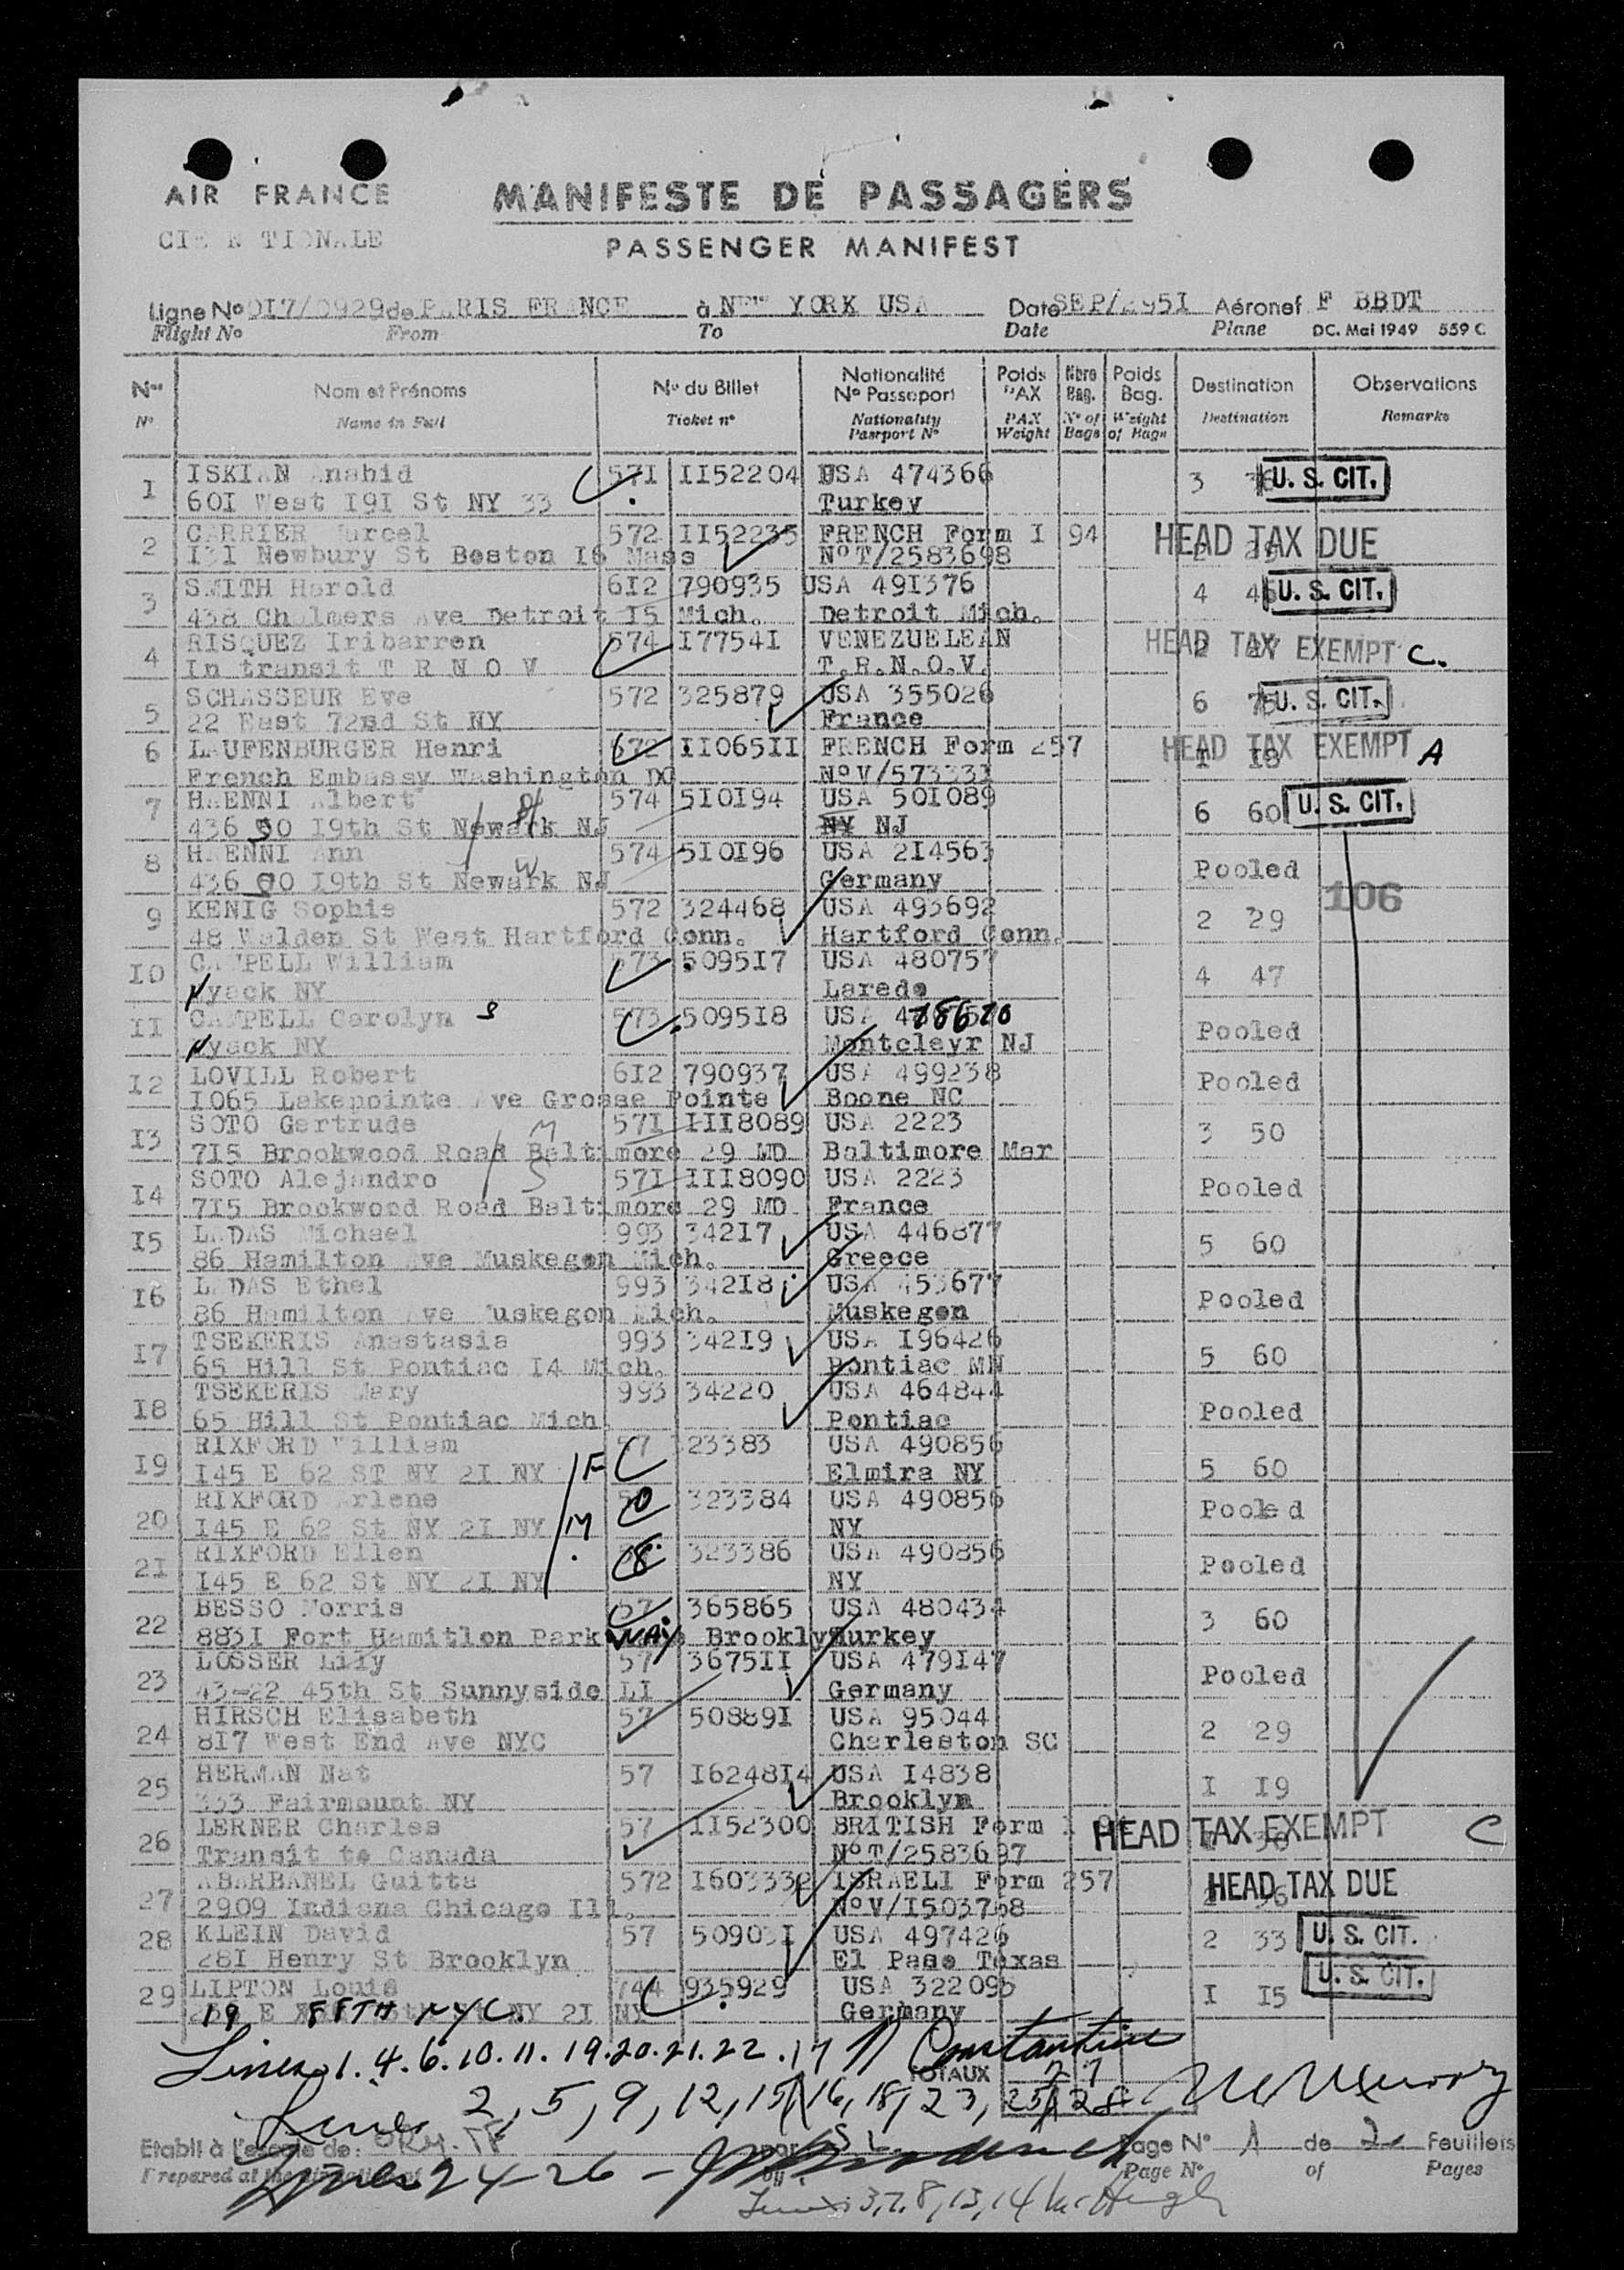 AIR FRANCE
MANIFESTE DE PASSAGERS
PASSENGER MANIFEST
Ligne No 0I7/0929 de PARIS FRANCE à NEW YORK USA Date SEP/2951 Aéronef F BBDT
Flight No From To Date Plane DC. Mai 1949 559 C
Nos Nom et Prénoms No du Billet Nationalité No Passeport Poids PAX Nbre Bag. Poids Bag. Destination Observations
No Name in Full Ticket no Nationality Passport No PAX Weight No of Bags Weight of Bags Destination Remarks
1 ISKIAN Anahid 57I II52204 USA 474366 3 U. S. CIT.
60I West I9I St NY 33 Turkey
2 CARRIER Marcel 572 II52235 FRENCH Form I 94 HEAD TAX DUE
I3I Newbury St Boston I6 Mass NoT/2583698
3 SMITH Harold 6I2 790935 USA 49I376 4 U. S. CIT.
438 Chalmers Ave Detroit I5 Mich. Detroit Mich.
4 RISQUEZ Iribarren 574 I7754I VENEZUELEAN HEAD TAX EXEMPT C.
In transit T R N O V T.R.N.O.V.
5 SCHASSEUR Eve 572 325879 USA 355026 6 U. S. CIT.
22 East 72nd St NY France
6 LAUFENBURGER Henri 572 II065II FRENCH Form 257 HEAD TAX EXEMPT A
French Embassy Washington DC NoV/57333I
7 HAENNI Albert 574 5I0I94 USA 50I089 6 60 U. S. CIT.
436 SO I9th St Newark NJ NY NJ
8 HAENNI Ann 574 5I0I96 USA 2I4563 Pooled
436 SO I9th St Newark NJ Germany
106
9 KENIG Sophie 572 324468 USA 493692 2 29
48 Walden St West Hartford Conn. Hartford Conn.
I0 CAMPELL William 573 5095I7 USA 480757 4 47
Nyack NY Laredo
II CAMPELL Carolyn S 573 5095I8 USA Pooled
Nyack NY Montcleyr NJ
I2 LOVILL Robert 6I2 790937 USA 499238 Pooled
I065 Lakepointe Ave Grosse Pointe Boone NC
I3 SOTO Gertrude M 57I III8089 USA 2223 3 50
7I5 Brookwood Road Baltimore 29 MD Baltimore Mar
I4 SOTO Alejandro S 57I III8090 USA 2223 Pooled
7I5 Brookwood Road Baltimore 29 MD France
I5 LADAS Michael 993 342I7 USA 446877 5 60
86 Hamilton Ave Muskegon Mich. Greece
I6 LADAS Ethel 993 342I8 USA 453677 Pooled
86 Hamilton Ave Muskegon Mich. Muskegon
I7 TSEKERIS Anastasia 993 342I9 USA I96426 5 60
65 Hill St Pontiac I4 Mich. Pontiac
I8 TSEKERIS Mary 993 34220 USA 464844 Pooled
65 Hill St Pontiac Mich Pontiac
I9 RIXFORD William 57 323383 USA 490856 5 60
I45 E 62 ST NY 2I NY F Elmira NY
20 RIXFORD Arlene 323384 USA 490856 Pooled
I45 E 62 St NY 2I NY M NY
2I RIXFORD Ellen 323386 USA 490856 Pooled
I45 E 62 St NY 2I NY NY
22 BESSO Morris 57 365865 USA 480434 3 60
883I Fort Hamitlon Park WAY Brooklyn Turkey
23 LOSSER Lily 57 3675II USA 479I47 Pooled
43-22 45th St Sunnyside LI Germany
24 HIRSCH Elisabeth 57 50889I USA 95044 2 29
8I7 West End Ave NYC Charleston SC
25 HERMAN Nat 57 I6248I4 USA I4838 I I9
333 Fairmount NY Brooklyn
26 LERNER Charles 57 II52300 BRITISH Form HEAD TAX EXEMPT C
Transit to Canada NoT/2583697
27 ABARBANEL Guitta 572 I603332 ISRAELI Form 257 HEAD TAX DUE
2909 Indiana Chicago Ill. NoV/I503768
28 KLEIN David 57 50903I USA 497426 2 33 U. S. CIT.
28I Henry St Brooklyn El Paso Texas
29 LIPTON Louis 744 935929 USA 322095 I I5 U. S. CIT.
19 E NYC. NY 2I NY Germany
Lines 1. 4. 6. 10. 11. 19. 20. 21. 22. 17 Constantine
TOTAUX
Lines 2, 5, 9, 12, 15, 16, 18, 23, 25, 28
Etabli à l'escale de: ORY. par Page No 1 de 2 Feuillets
Prepared at the by Page No of Pages
Lines 24-26
Lines 3, 7, 8, 13, 14 McHugh